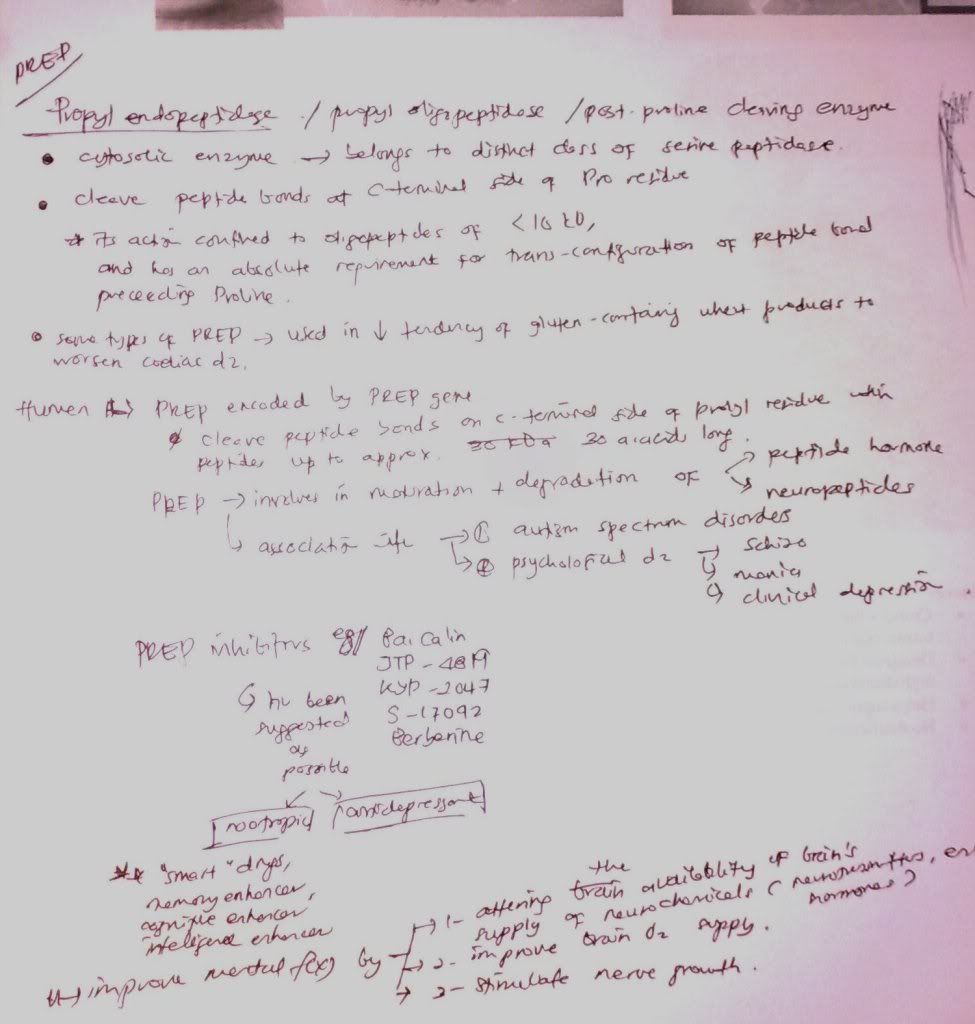 PREP
Propyl endopeptidase / propyl oligopeptidase / post-proline cleaving enzyme
• cytosolic enzyme → belongs to distinct class of serine peptidase.
• cleave peptide bonds at C-terminal side of Pro residue
* Its action confined to oligopeptides of < 10 kD,
and has an absolute requirement for trans-configuration of peptide bond
preceeding Proline.
• some types of PREP → used in ↓ tendency of gluten-containing wheat products to
worsen coeliac dz.
Human → PREP encoded by PREP gene
cleave peptide bonds on C-terminal side of prolyl residue within
peptides up to approx. 30 a.acids long.
PREP → involves in maturation + degradation of → peptide hormone
→ neuropeptides
↳ association → ① autism spectrum disorder
→ ② psychological dz → schizo
↳ mania
↳ clinical depression.
PREP inhibitors eg/ Baicalin
JTP-4819
KYP-2047
↳ hv been S-17092
suggested Berberine
as
possible
nootropic antidepressant
** "smart" drugs,
memory enhancer,
cognitive enhancer,
intelligence enhancer
↳ improve mental f(x) by
→ 1- altering the brain availability of brain's
supply of neurochemicals (neurotransmitters, en
hormones)
→ 2- improve brain O2 supply.
→ 3- stimulate nerve growth.